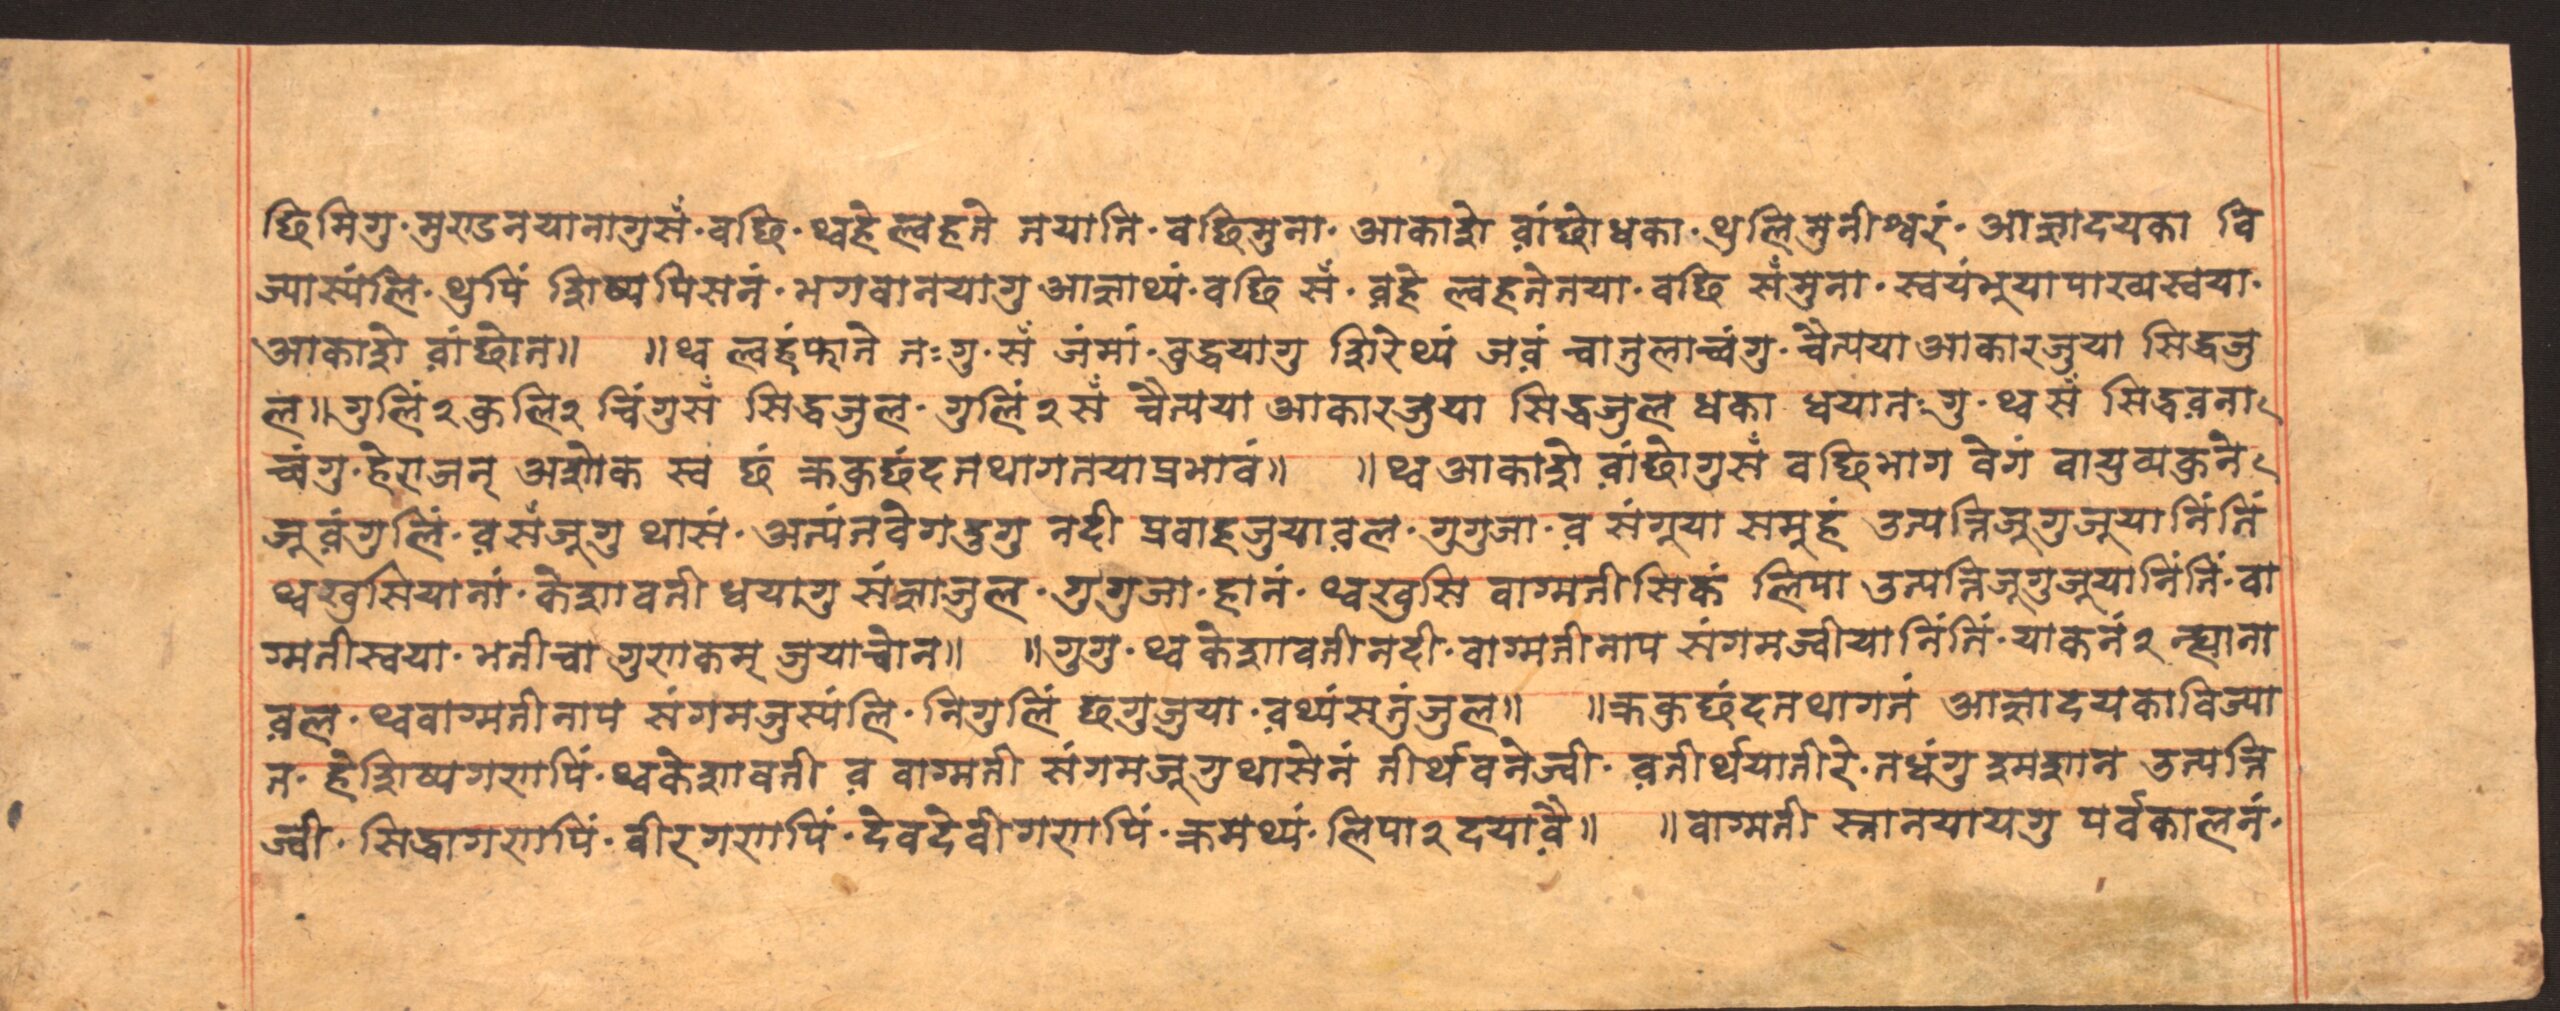 छिमिगु · मुण्डनयानागुसँ · वछि · थ्वहे ल्वहने तयाति · वछिमुना · आकाशे व़ांछोधका · थुलिमुनीश्वरं · आज्ञादयका वि
ज्यास्यंलि · थुपिं शिष्यपिसनं · भगवानयागु आज्ञाथ्यं · वछि सँ · व़हे ल्वहनेतया · वछि सँमुना · स्वयंभुयापारव्यस्वया ·
आकाशे व़ांछोत॥ ॥थ्व ल्वहंफाने तःगु · सँ जंमां · वुद्धयागु शिरेथ्यं जव़ं चातुलाच्वंगु · चैत्यया आकारजुया सिद्धजु
ल॥ गुलिं२ कुलि२ चिंगुसँ सिद्धजुल · गुलिं२सँ चैत्यया आकारजुया सिद्धजुल धका ध्वयातःगु · थ्व सँ सिद्धव़ना
च्वंगु · हेराजन् अशोक स्व छं क्रकुछंदतथागतयाप्रभावं॥ ॥थ्व आकाशे व़ांछोगुसँ वछिभाग वेगं वायुव्यकुने
जूव़ंगुलिं · व़सँजूगु थासं · अत्यंतवेगदुगु नदी प्रवाहजुयाव़ल · गुगुजा · व़ संगूया समूहं उत्पन्निजूगुजूयानिंतिं
थ्वखुसियानां · केशावती धयागु संज्ञाजुल · गुगुजा · हानं · थ्वखुसि वाग्मतीसिकं लिपा उत्पन्निजूगुजूयानिंतिं · वा
ग्मतीस्वया · भतीचा गुणकम् जुयाचोन॥ ॥गुगु · थ्व केशावतीनदी · वाग्मतीनाप संगमज्वीयानिंतिं · याकनं२ न्ह्याना
व़ल · थ्ववाग्मतीनाप संगमजुस्यंलि · निगुलिं छगुजुया · व़थ्यंसतुंजुल॥ ॥क्रकुछंदतथागतं आज्ञादयकाविज्या
त · हेशिष्यगणपिं · थ्वकेशावती व़ वाग्मती संगमजूगुथासेनं तीर्थवनेज्वी · व़तीर्थयातीरे · तधंगु श्मशान उत्पन्नि
ज्वी · सिद्धागणपिं · वीरगणपिं · देवदेवीगणपिं · क्रमथ्यं · लिपा२ दयाव़ै॥ ॥वाग्मती स्नानयायगु पर्वकालनं ·